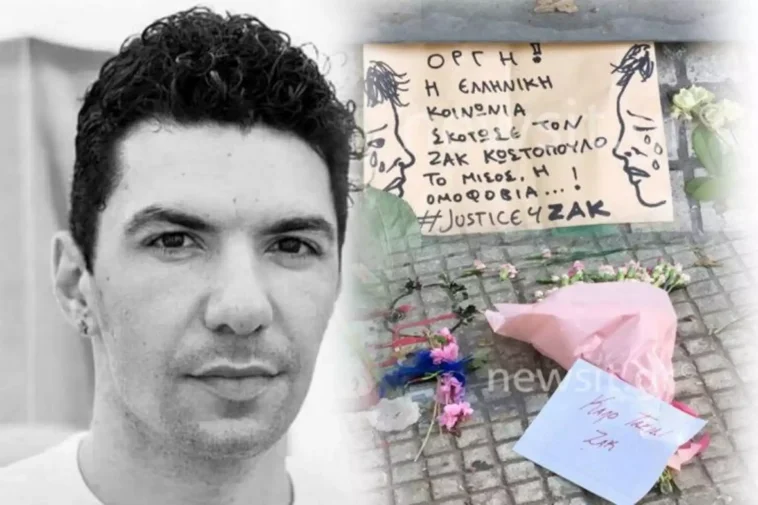 ΟΡΓΗ!
Η ΕΛΛΗΝΙΚΗ
ΚΟΙΝΩΝΙΑ
ΣΚΟΤΩΣΕ ΤΟΝ
ΖΑΚ ΚΩΣΤΟΠΟΥΛΟ
ΤΟ ΜΙΣΟΣ, Η
ΟΜΟΦΟΒΙΑ...!
#JUSTICE4ZAK
newsit.gr
Καλο Ταξίδι
ΖΑΚ